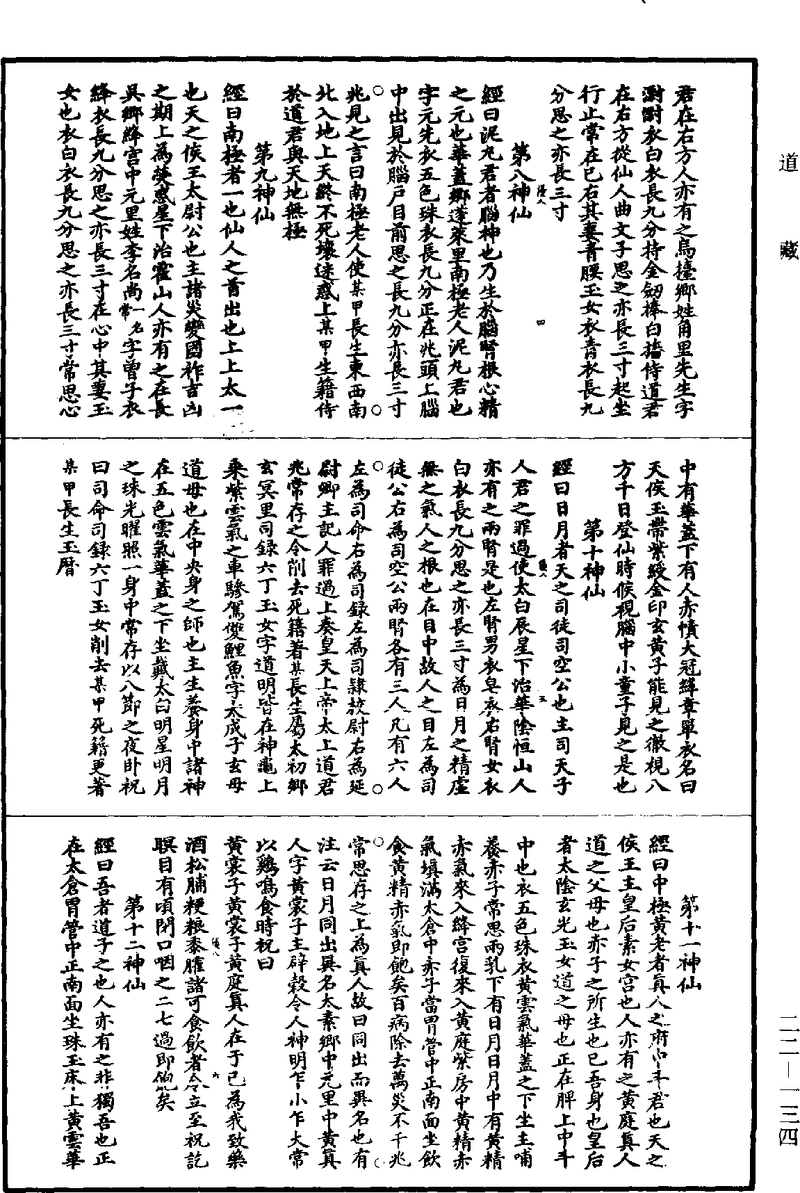 道藏
君在右方人亦有之烏擡鄉姓角里先生字
灂灂衣白衣長九分持金劒捧白旛侍道君
在右方從仙人曲文子思之亦長三寸起坐
行止常在已右其妻青腰玉女衣青衣長九
分思之亦長三寸
第八神仙
經曰泥丸君者腦神也乃生於腦腎根心精
之元也華蓋鄉蓬萊里南極老人泥丸君也
字元先衣五色珠衣長九分正在兆頭上腦
中出見於腦戶目前思之長九分亦長三寸
兆見之言曰南極老人使某甲長生東西南
北入地上天終不死壞迷惑上某甲生籍侍
於道君與天地無極
第九神仙
經曰南極者一也仙人之首出也上上太一
也天之侯王太尉公也主諸災變國祚吉凶
之期上為熒惑星下治霍山人亦有之在長
吳鄉絳宮中元里姓李名尚常一名字曾子衣
絳衣長九分思之亦長三寸在心中其妻玉
女也衣白衣長九分思之亦長三寸常思心
中有華蓋下有人赤幘大冠絳章單衣名曰
天侯玉帶紫綬金印玄黃子能見之徹視八
方千日登仙時候視腦中小童子見之是也
第十神仙
經曰日月者天之司徒司空公也主司天子
人君之罪過使太白辰星下治華陰恒山人
亦有之兩腎是也左腎男衣皂衣右腎女衣
白衣長九分思之亦長三寸為日月之精虛
無之氣人之根也在目中故人之目左為司
徒公右為司空公兩腎各有三人凡有六人
左為司命右為司錄左為司隸校尉右為延
尉卿主記人罪過上奏皇天上帝太上道君
兆常存之令削去死籍著某長生屬太初鄉
玄冥里司錄六丁玉女字道明皆在神龜上
乘紫雲氣之車驂駕雙鯉魚字太成子玄母
道母也在中央身之師也主生養身中諸神
在五色雲氣華蓋之下坐戴太白明星明月
之珠光曜照一身中常存以八節之夜卧祝
曰司命司錄六丁玉女削去某甲死籍更著
某甲長生玉曆
第十一神仙
經曰中極黃老者真人之府中斗君也天之
侯王主皇后素女宮也人亦有之黃庭真人
道之父母也赤子之所生也已吾身也皇后
者太陰玄光玉女道之母也正在脾上中斗
中也衣五色珠衣黃雲氣華蓋之下坐主哺
養赤子常思兩乳下有日月日月中有黃精
赤氣來入絳宮復來入黃庭紫房中黃精赤
氣填滿太倉中赤子當胃管中正南面坐飲
食黃精赤氣即飽矣百病除去萬災不干兆
常思存之上為真人故曰同出而異名也有
注云日月同出異名太素鄉中元里中黃真
人字黃裳子主辟穀令人神明乍小乍大常
以鷄鳴食時祝曰
黃裳子黃裳子黃庭真人在于已為我致藥
酒松脯粳粮黍臛諸可食飲者令立至祝訖
瞑目有頃閉口咽之二七過即飽矣
第十二神仙
經曰吾者道子之也人亦有之非獨吾也正
在太倉胃管中正南面坐珠玉床上黃雲華
二二—一三四